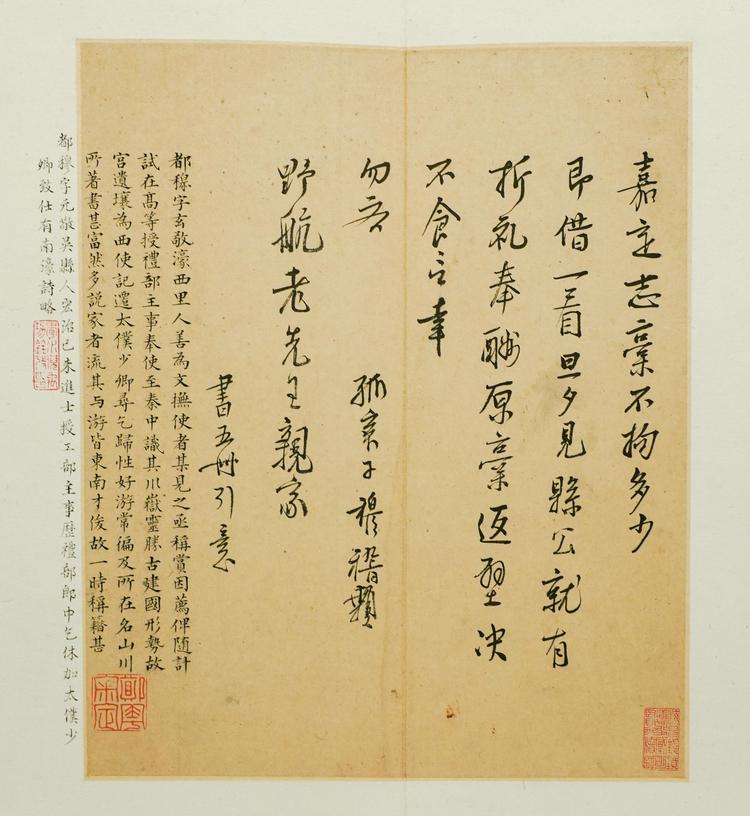 嘉定志稾不拘多少
即借一二目旦夕見縣公就有
折礼奉酬原稾返璧决
不食言幸
勿吝
孤哀子穆稽顙
野航老先生親家
書五冊引意
都穆字玄敬濠西里人善為文撫使者某見之亟稱賞因薦俾隨計
試在髙等授禮部主事奉使至秦中識其川嶽靈勝古建國形勢故
宮遺壤為西使記遷太僕少卿尋乞歸性好游常徧及所在名山川
所著書甚富然多説家者流其与游皆東南才俊故一時稱籍甚
都穆字元敬吳縣人宏治己未進士授工部主事歷禮部郎中乞休加太僕少
卿致仕有南濠詩略